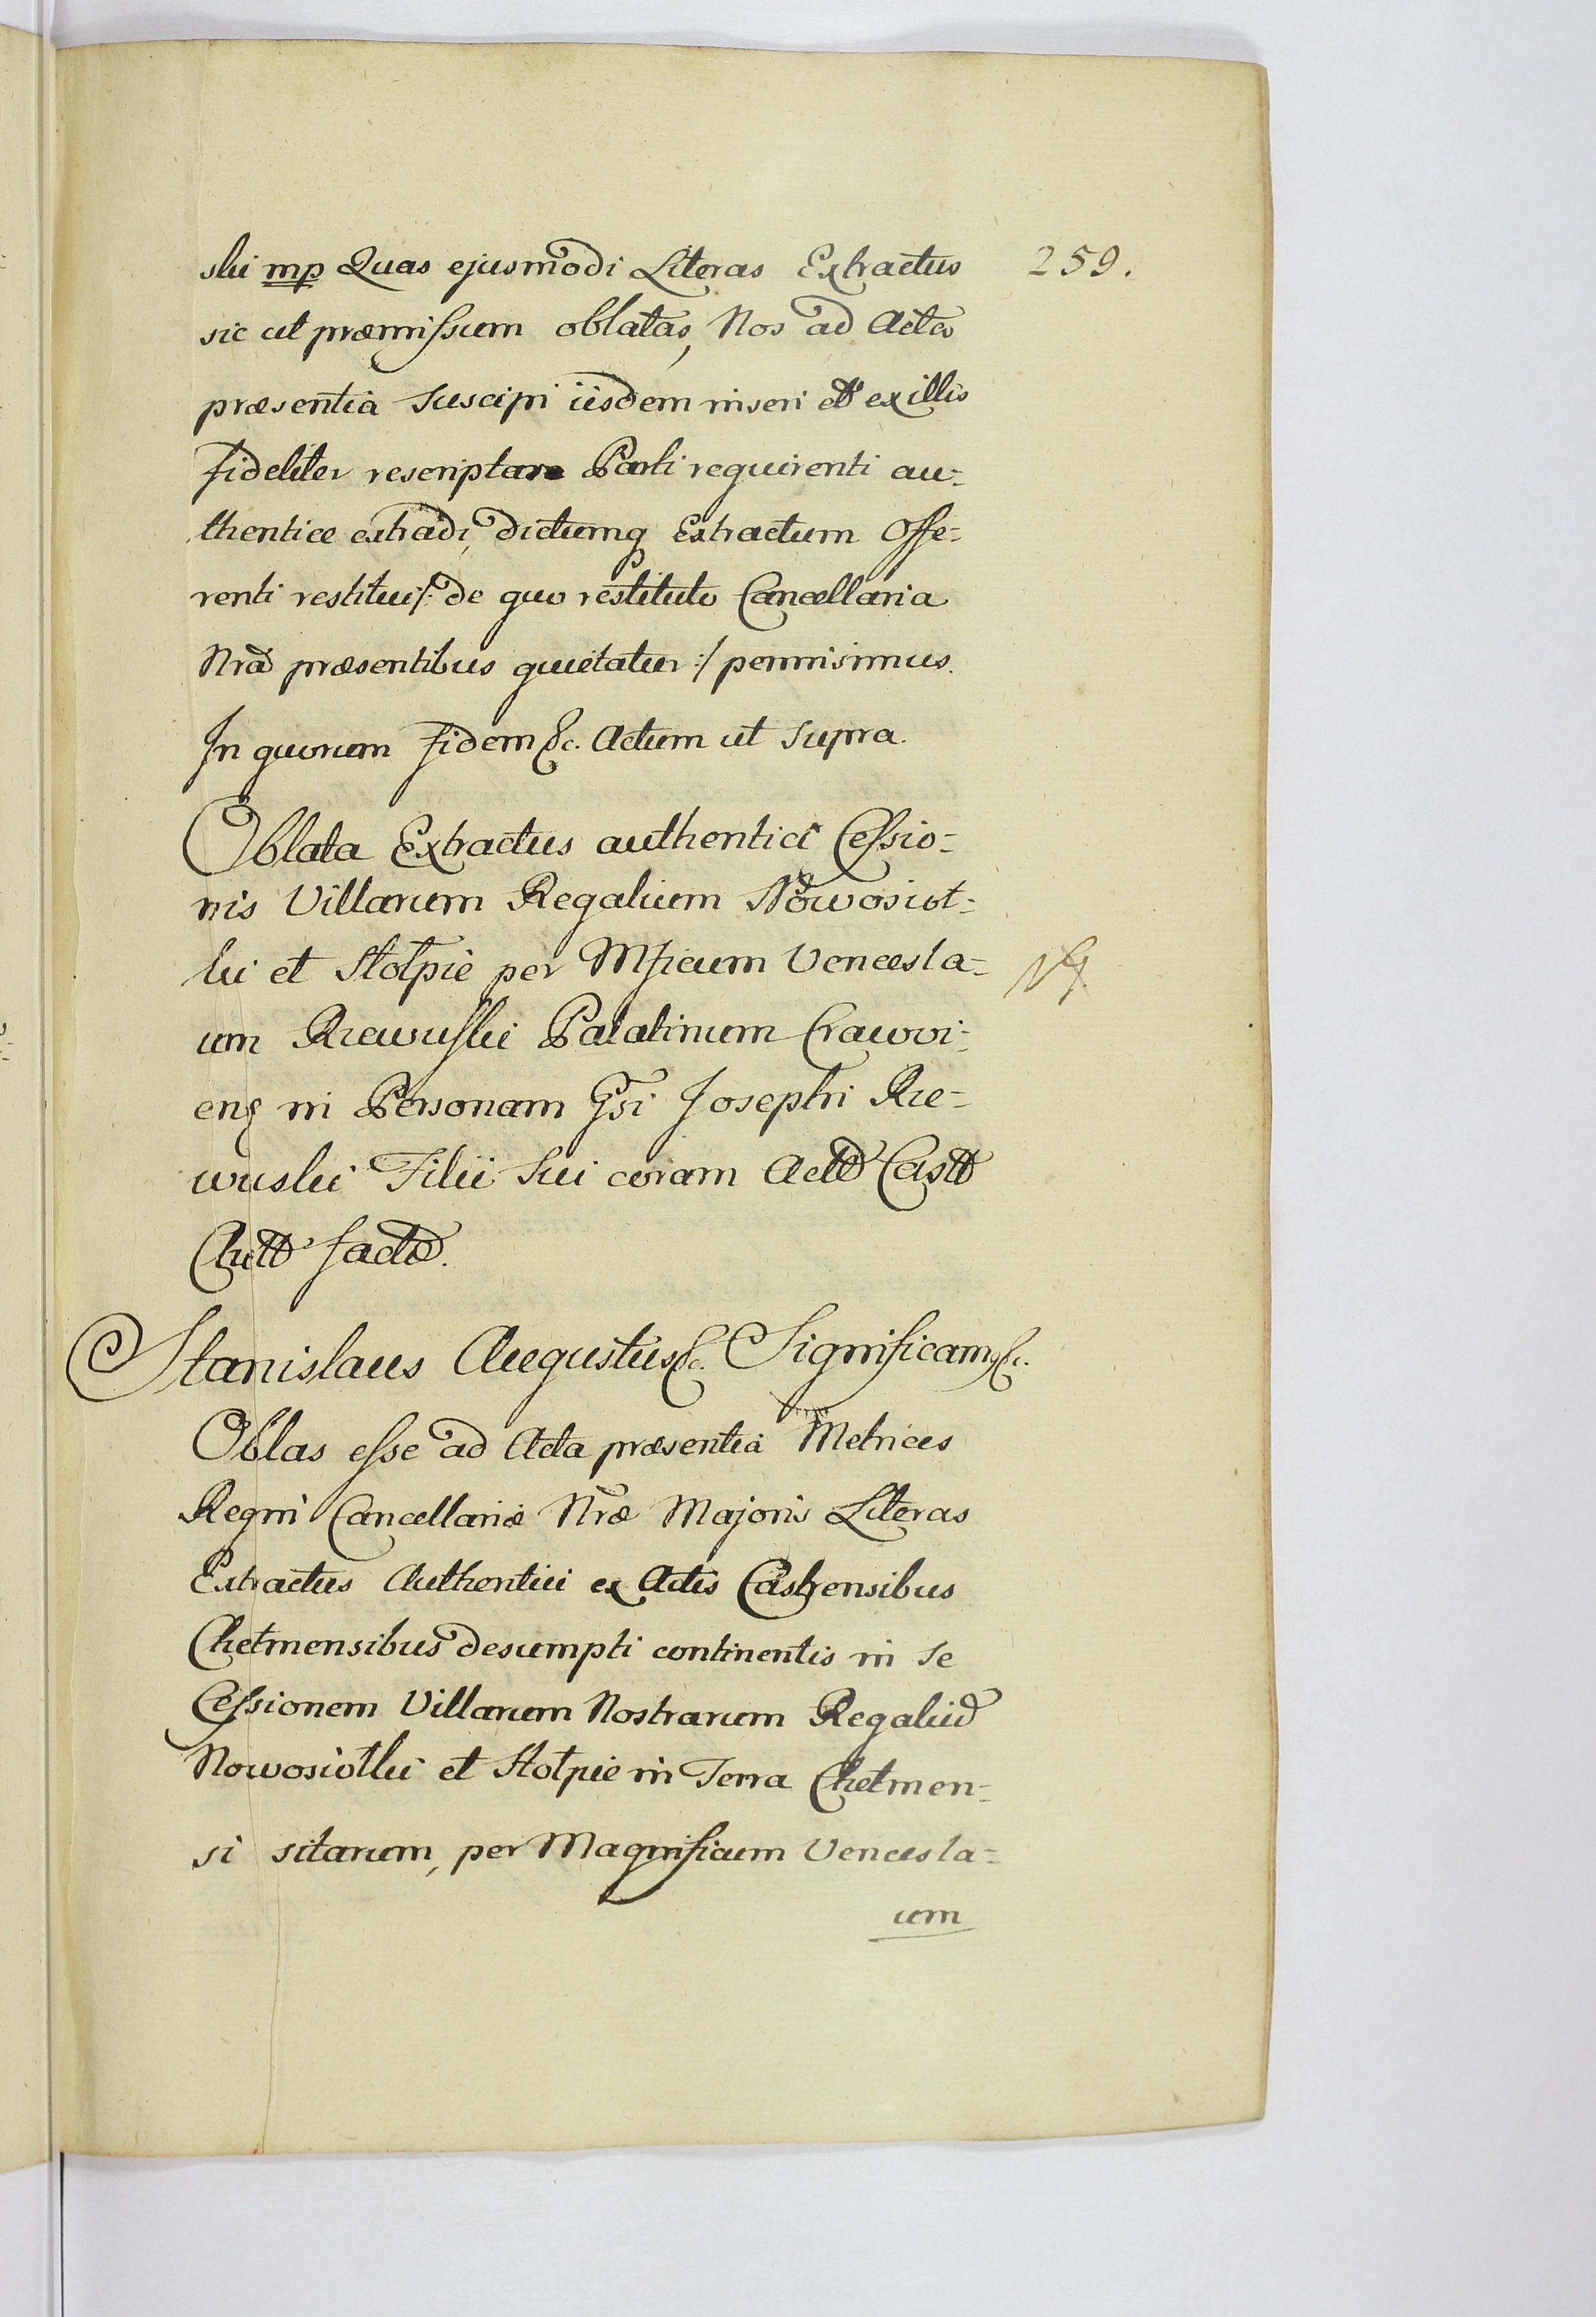 ski mp Quas ejusmodi Literas Extractus
259.
sic ut præmissum oblatas, Nos ad Acta
præsentia suscipi iisdem inseri et ex illis
fideliter rescriptas Parti requirenti au-
thentice extradi, dictumq Extractum Offe-
renti restitui /: de quo restituto Cancellaria
Nra præsentibus quietatur :/ permisimus.
In quorum fidem &c. Actum ut supra.
Oblata Extractus authentici Cessio-
nis Villarum Regalium Nowosioł-
ki et Stołpie per Mficum Vencesla-
um Rzewuski Palatinum Cracovi-
en in Personam Gsi Josephi Rze-
wuski Filii sui coram Actis Castr
Chełm facta.
Stanislaus Augustus &c. Significam &c.
Oblas esse ad Acta præsentia Metrices
Regni Cancellariæ Nræ Majoris Literas
Extractus Authentici ex Actis Castrensibus
Chełmensibus desumpti continentis in se
Cessionem Villarum Nostrarum Regaliu
Nowosiołki et Stołpie in Terra Chełmen-
si sitarum, per Magnificum Vencesla-
um